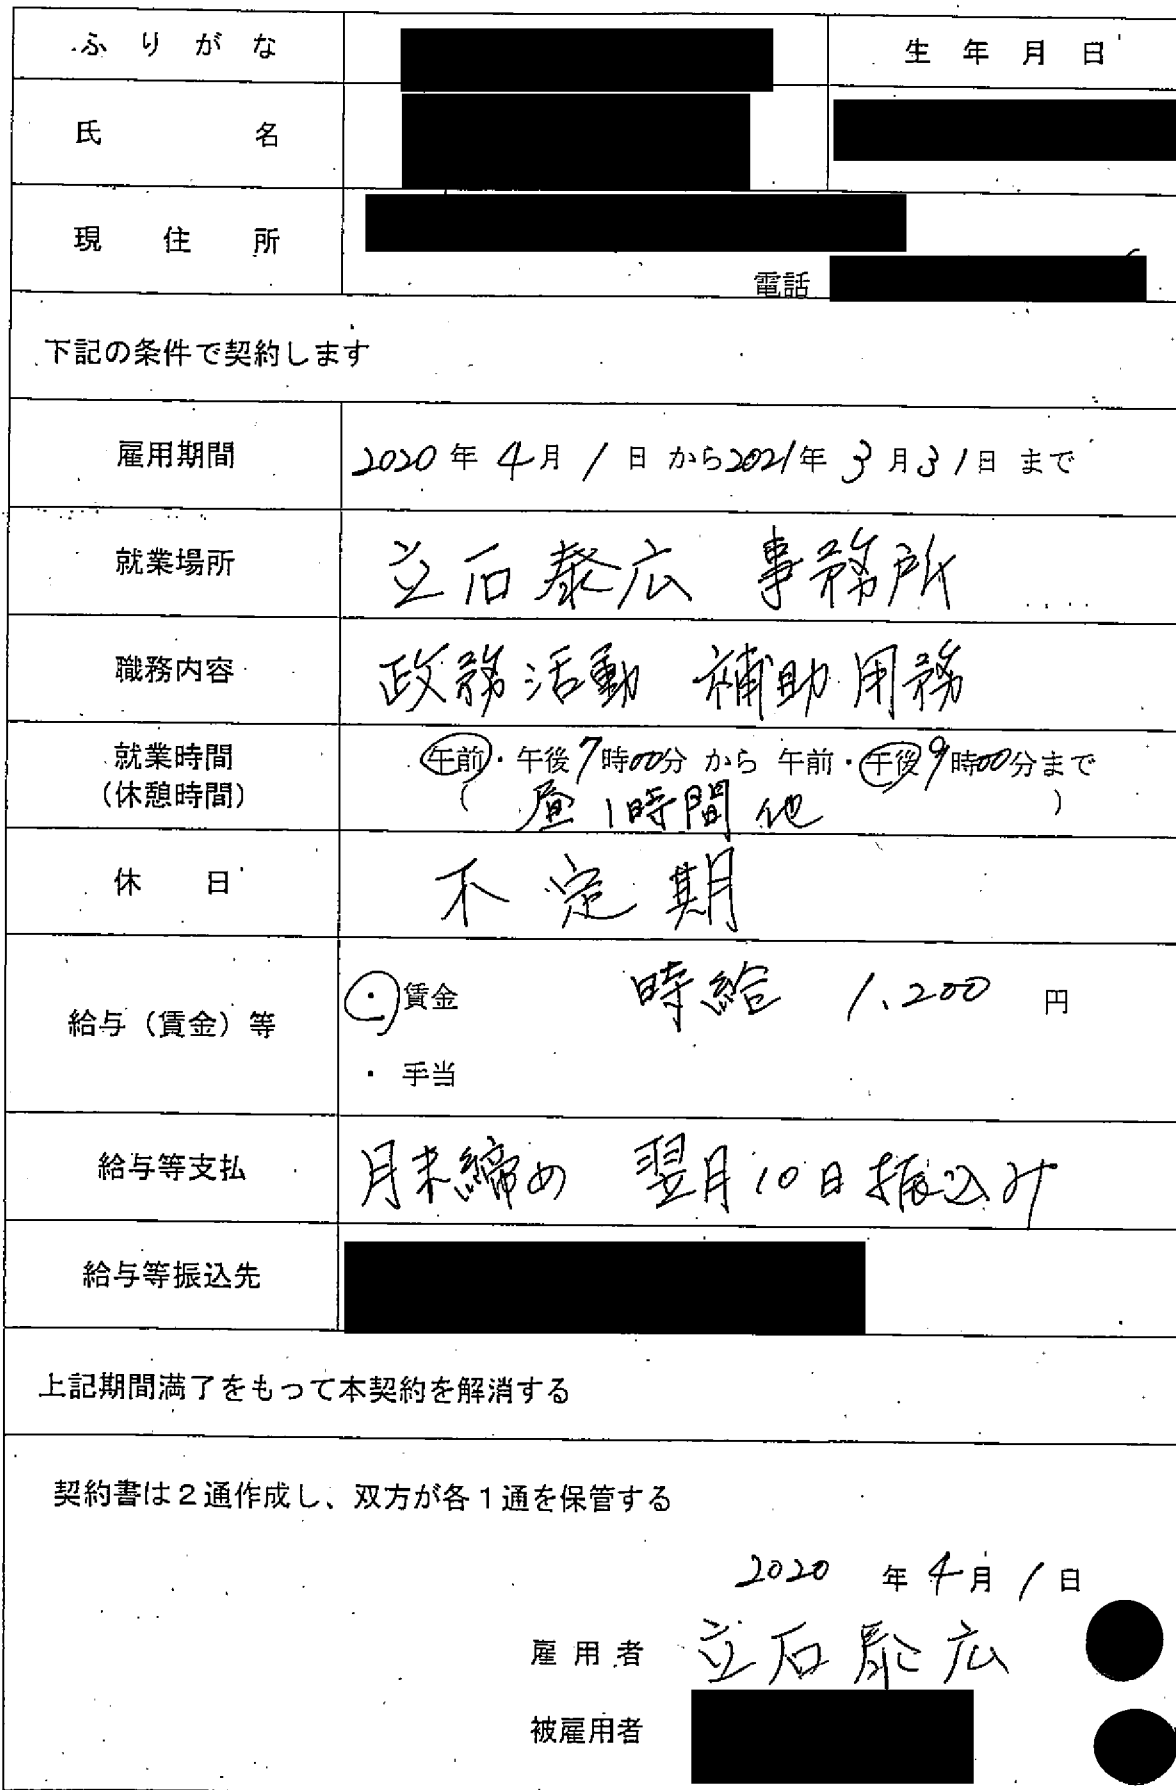 ふりがな
生年月日
氏名
現住所
電話
下記の条件で契約します
雇用期間 2020年4月1日から2021年3月31日まで
就業場所 立石泰広 事務所
職務内容 政務活動 補助用務
就業時間 午前・午後7時00分 から 午前・午後9時00分まで
(休憩時間) ( 昼1時間他 )
休日 不定期
給与(賃金)等 ・賃金 時給 1,200 円
・手当
給与等支払 月末締め 翌月10日振込み
給与等振込先
上記期間満了をもって本契約を解消する
契約書は2通作成し、双方が各1通を保管する
2020 年4月1日
雇用者 立石泰広
被雇用者